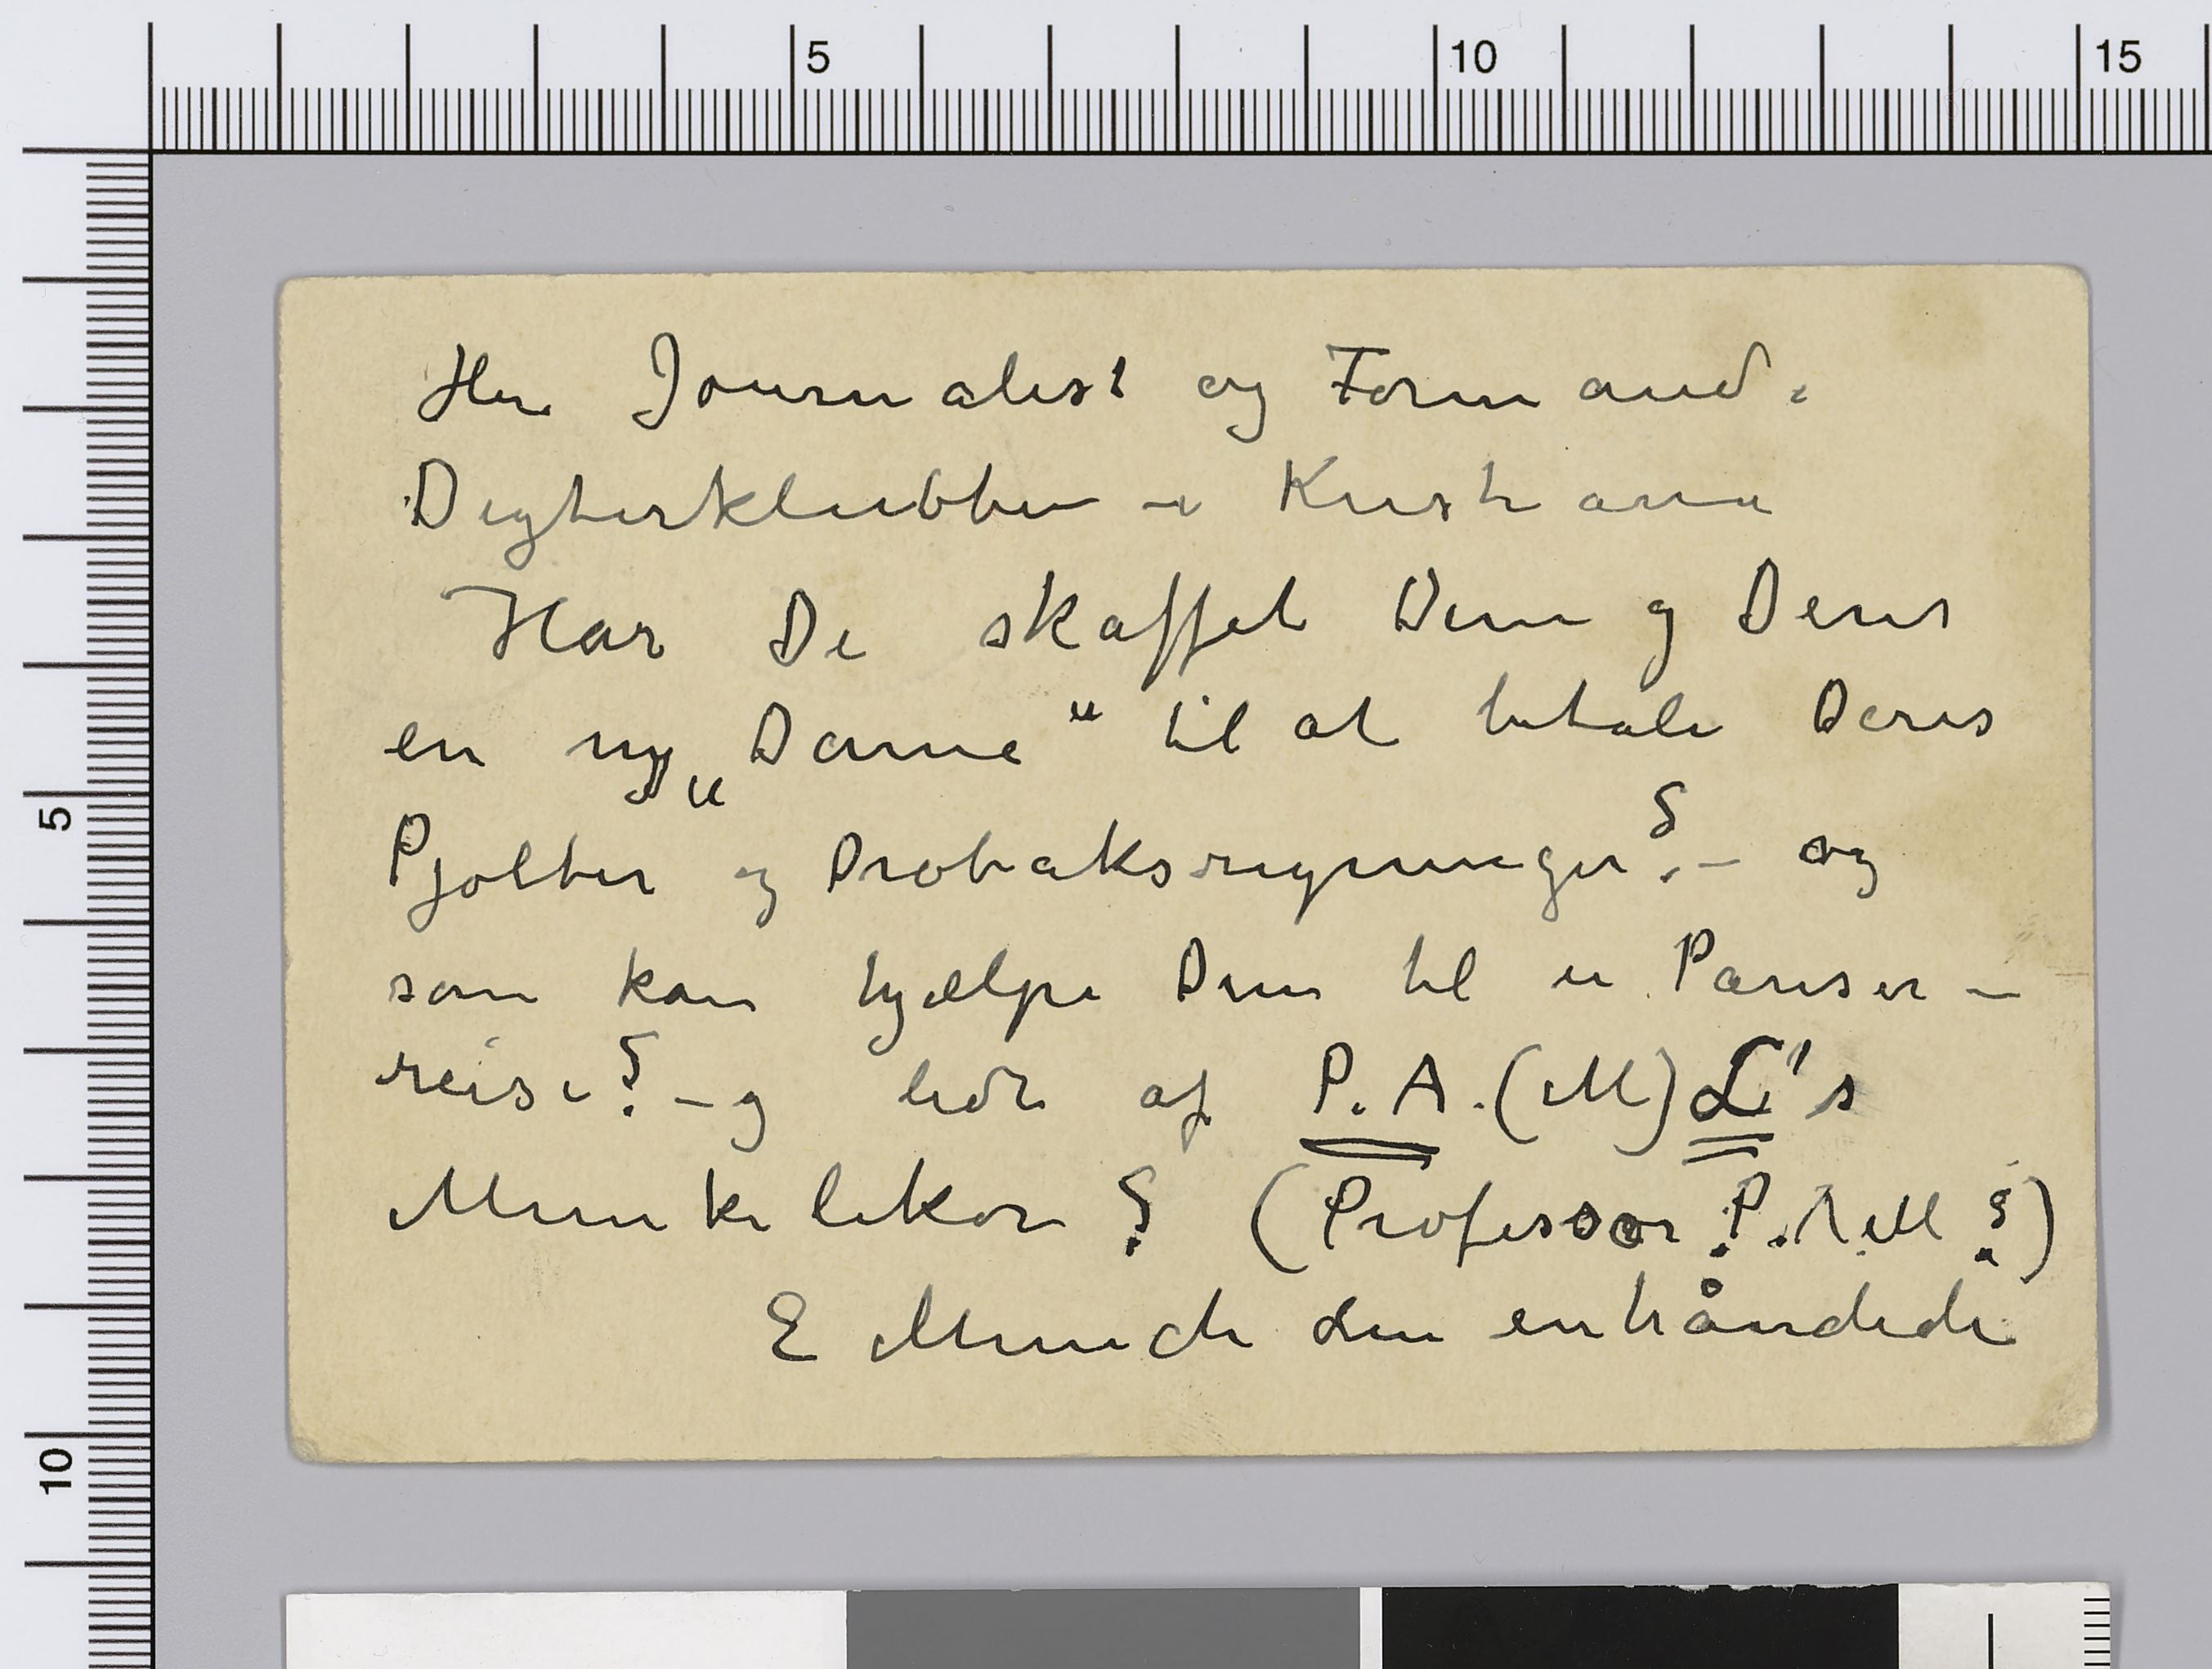 5 10 15
Herr Journalist og Formand i
Digterklubben i Kristiania
Har De skaffet Dem og Deres
en ny „Dame“ til at betale Deres
Pjolter og Drøbaksregninger? – og
som kan hjælpe Dem til en Pariser–
reise? – og lidt af P. A. (M) L's
Munkelikør? (Professor P. A M?)
E Munch den enhåndede
5
10